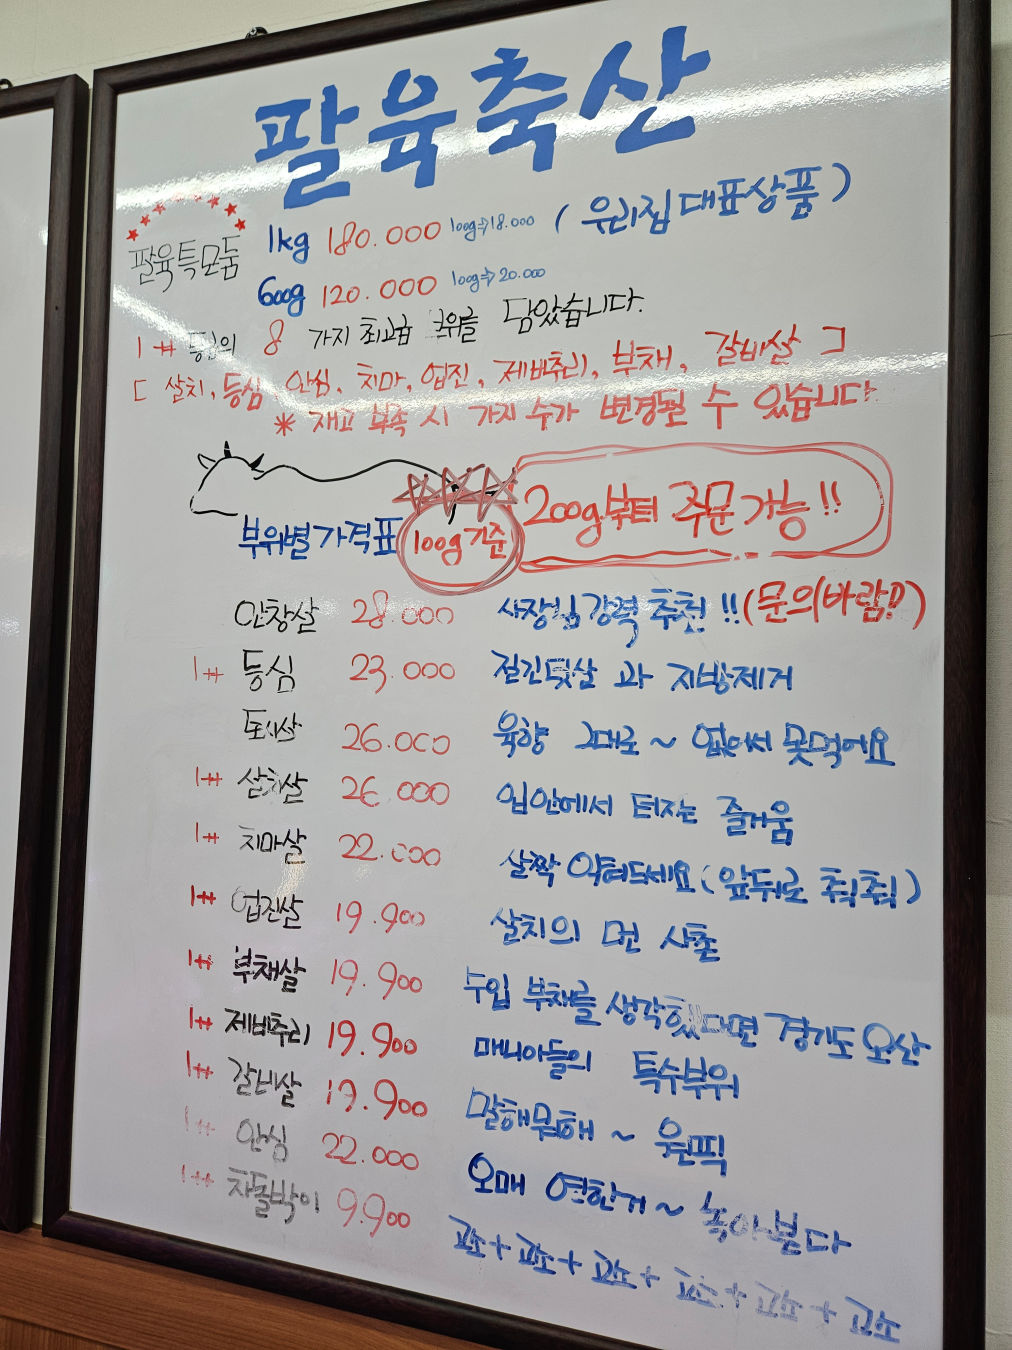 팔육축산
팔육특모둠
1kg 180.000 100g⇒18.000 (우리집 대표상품)
600g 120.000 100g⇒20.000
1++ 등급의 8 가지 최고급 부위를 담았습니다.
[살치, 등심, 안심, 치마, 업진, 제비추리, 부채, 갈비살]
* 재고 부족 시 가지 수가 변경될 수 있습니다
부위별 가격표 100g 기준 200g부터 주문가능!!
안창살 28.000 사장님 강력 추천!! (문의바람!)
1++ 등심 23.000 질긴 덧살 과 지방제거
토시살 26.000 육향 그대로 ~ 없어서 못먹어요
1++ 살치살 26.000 입안에서 터지는 즐거움
1++ 치마살 22.000 살짝 익혀드세요 (앞뒤로 칙칙)
1++ 업진살 19.900 살치의 먼 사촌
1++ 부채살 19.900 수입 부채를 생각했다면 경기도 오산
1++ 제비추리 19.900 매니아들의 특수부위
1++ 갈비살 19.900 말해뭐해 ~ 원픽
1++ 안심 22.000 오매 연한거 ~ 녹아분다
1++ 차돌박이 9.900 고소+고소+고소+고소+고소+고소